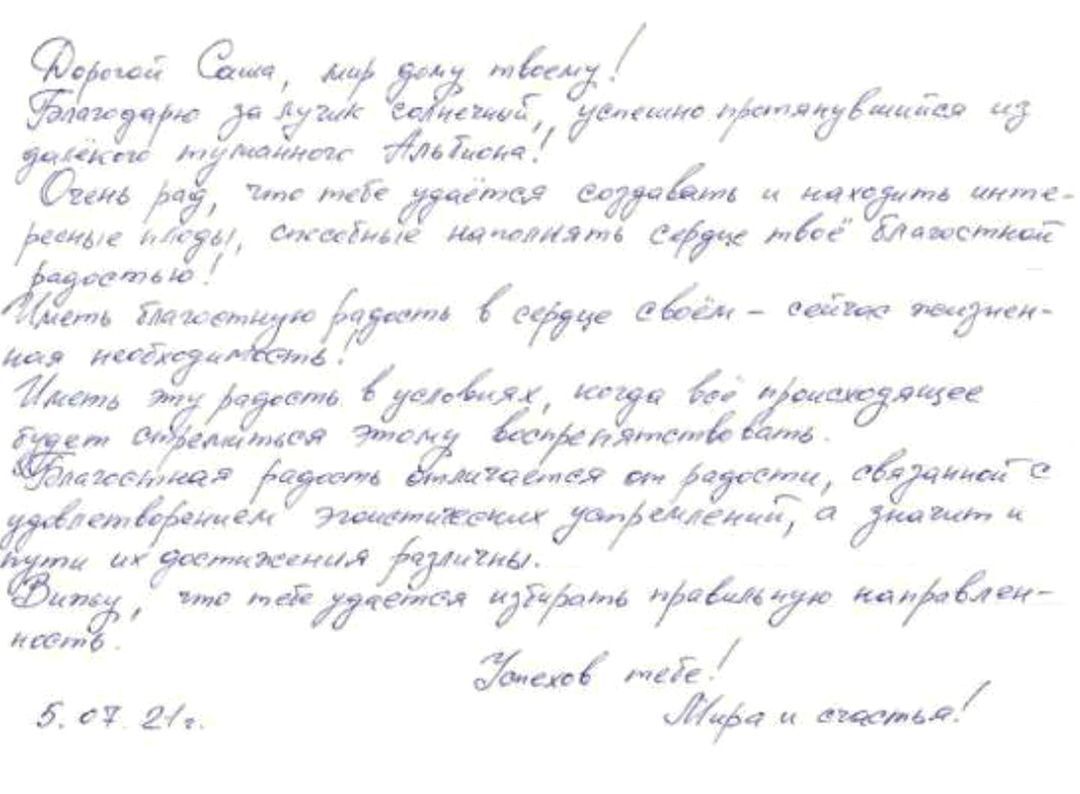 Дорогой Саша, мир дому твоему!
Благодарю за лучик солнечный, успешно протянувшийся из
далёкого туманного Альбиона!
Очень рад, что тебе удаётся создавать и находить инте-
ресные плоды, способные наполнять сердце твоё благостной
радостью!
Иметь благостную радость в сердце своём – сейчас жизнен-
ная необходимость!
Иметь эту радость в условиях, когда всё происходящее
будет стремиться этому воспрепятствовать.
Благостная радость отличается от радости, связанной с
удовлетворением эгоистических устремлений, а значит и
пути их достижения различны.
Вижу, что тебе удаётся избирать правильную направлен-
ность.
Успехов тебе!
5.07.21г.
Мира и счастья!